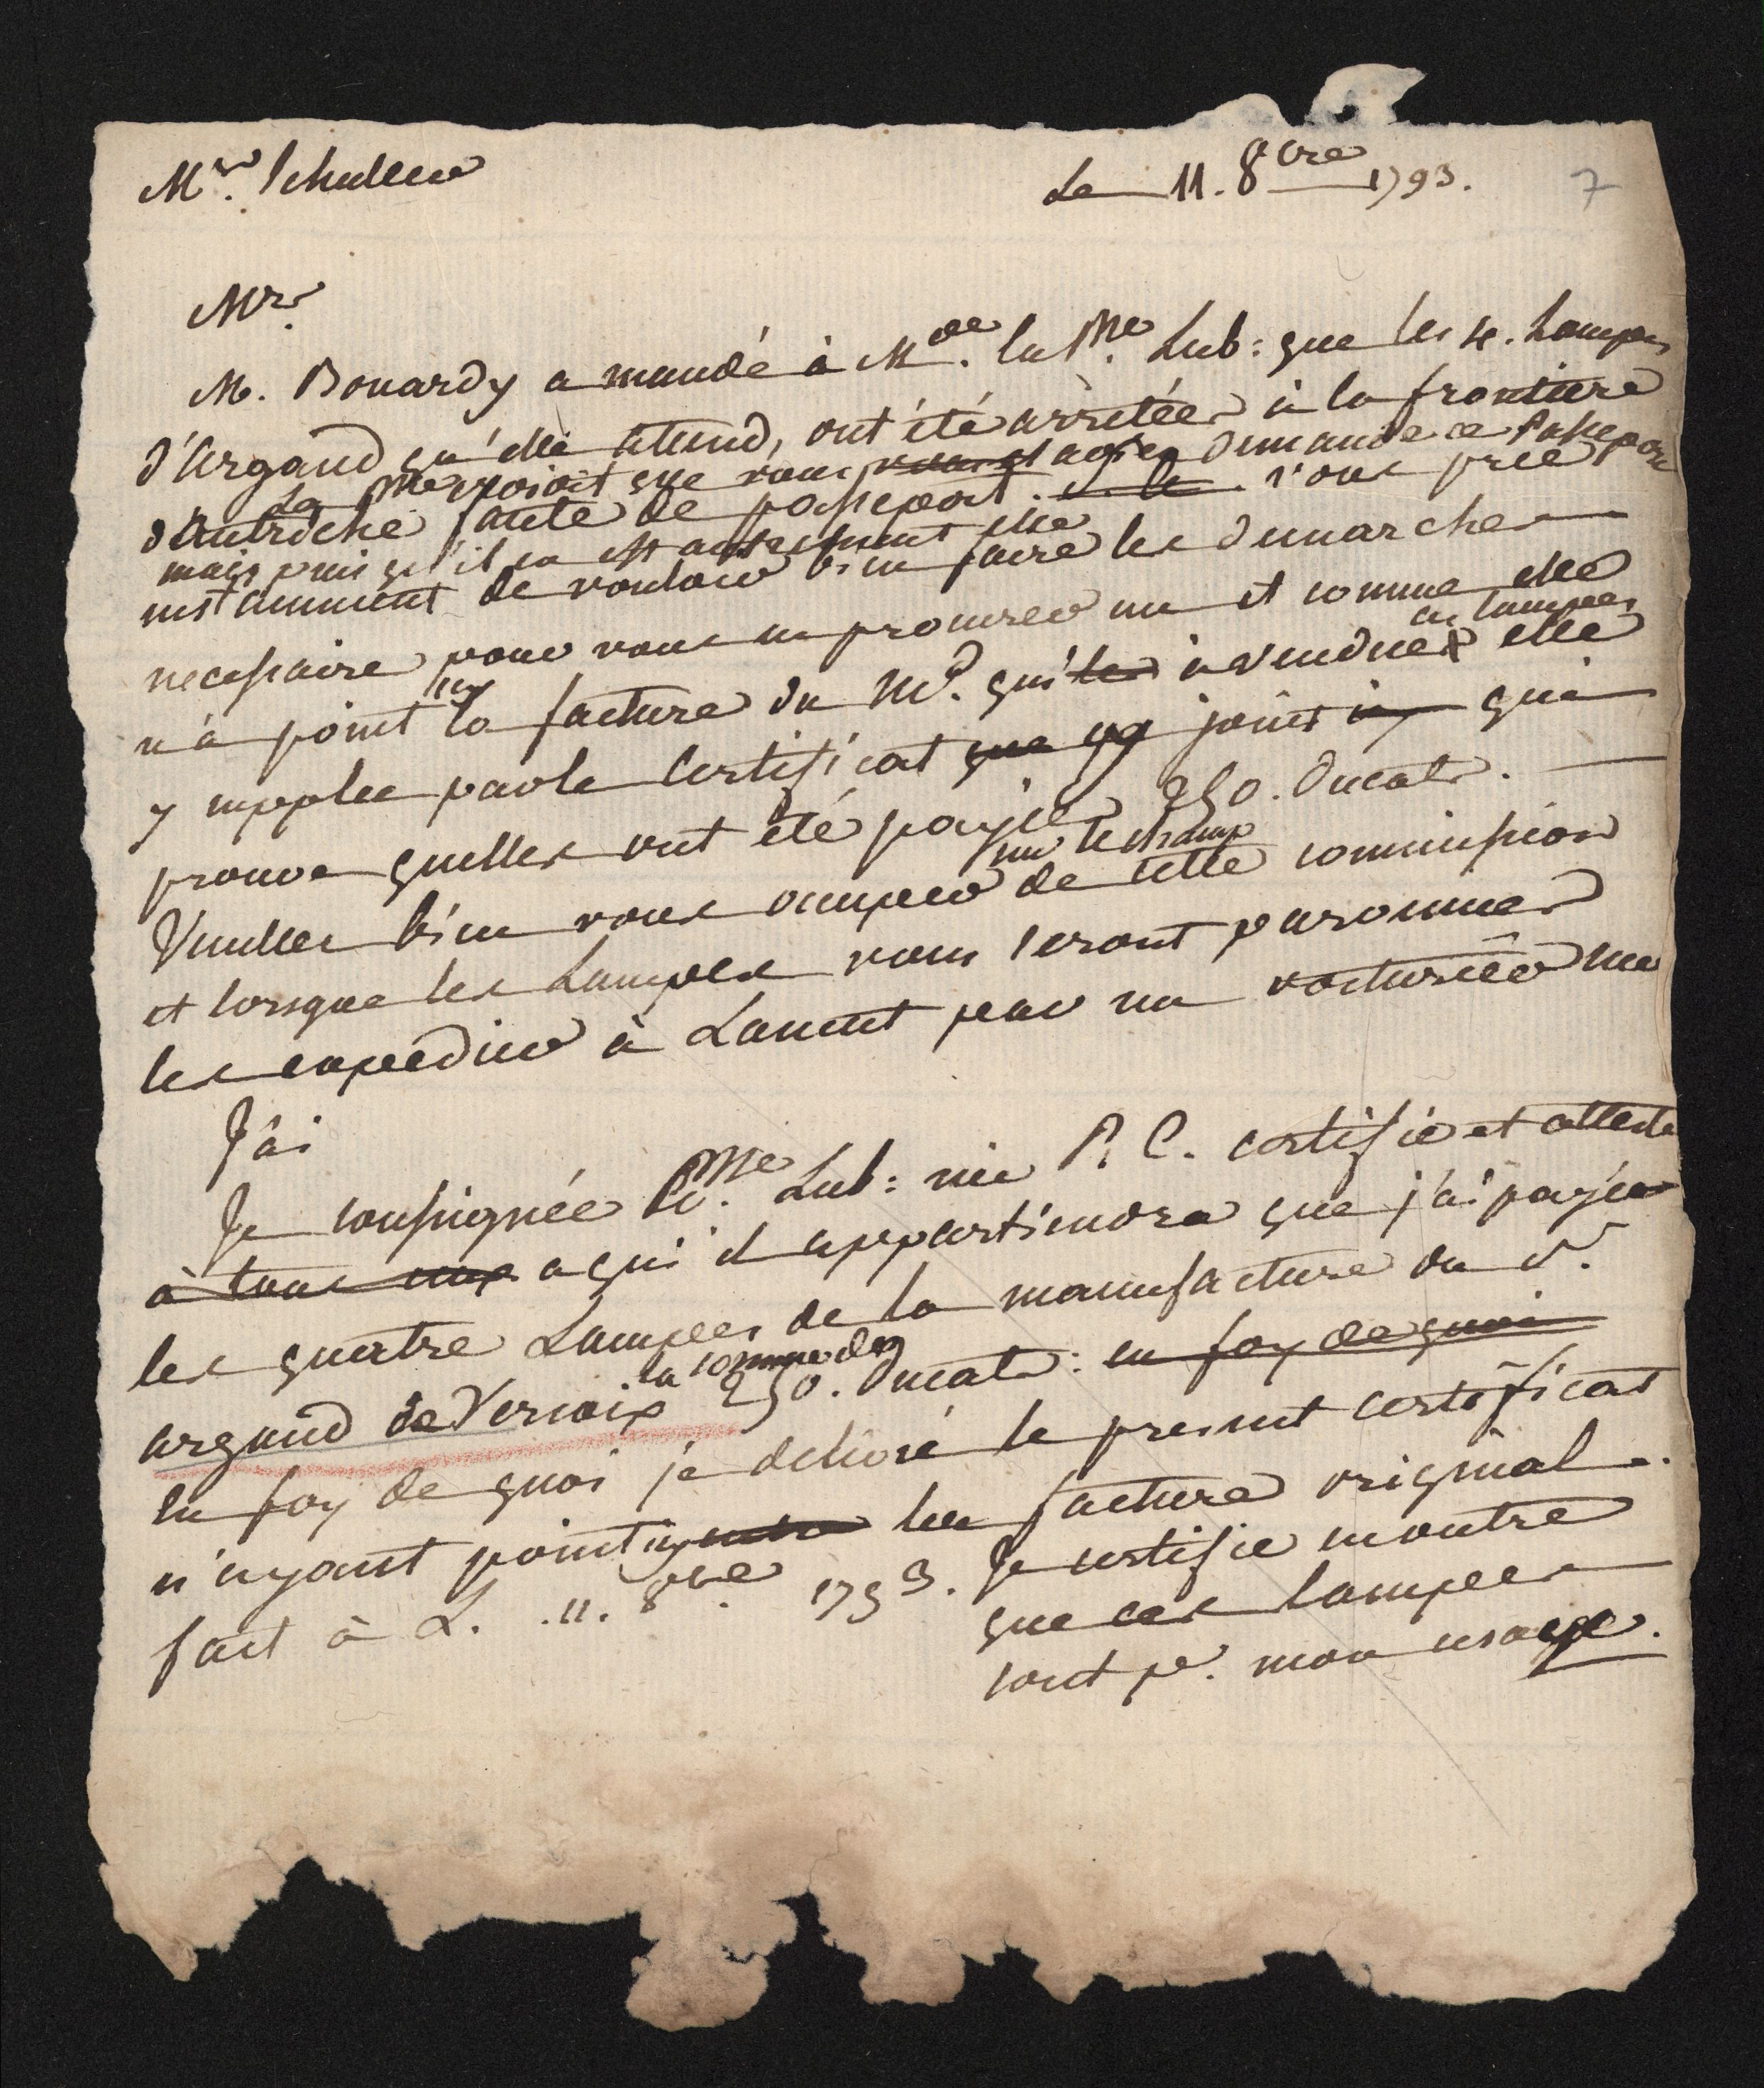 Mr. Schuller
Le 11. 8bre 1793.
7
Mr.
M. Bouardy a mandé à Mde. la Pse. Lub: que les 4. Lampes
d'Argand qu'elle attend, ont été arrêtées à la frontiere
La Psse croioit que vous aviez demandé ce Passeport
d'Autriche faute de passeport. vous prie
mais puis qu'il en est autrement elle
instamment de vouloir bien faire les demarches
necessaire pour vous en procurer un et comme elle
ces lampes
n'a point icy la facture du Md. qui à vendues elle
y supplee par le Certificat joint qui
prouve quelles ont été payées 250. Ducats.
sur le champ
Veuillez bien vous occuper de cette commission
et lorsque les Lampes vous seront parvenues
les expedier à Lancut par un voiturier
J'ai
Je soussignée Psse. Lub: née P. C. certifie et atteste
à tous ceux a qui il appartiendra que j'ai payée
les quatre Lampes de la manufacture du Sr.
la somme de
argand de Versoix 250. Ducats: en foy de quoi
en foy de quoi je delivre le present certificat
n'ayant point icy la facture original.
fait à L. .11. 8bre. 1793. Je certifie en outre
que ces lampes
sont pr. mon usage.